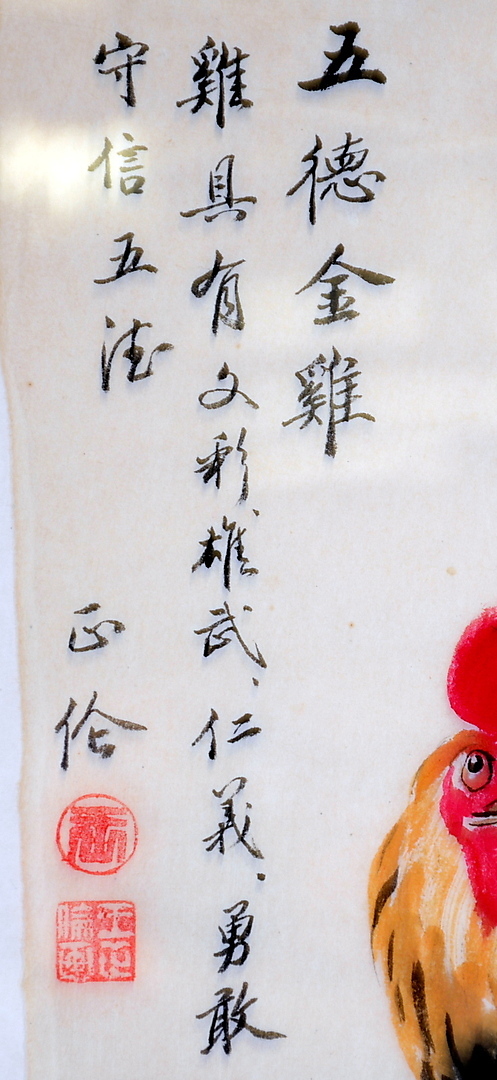 五德金雞
雞具有文彩、雄武、仁義、勇敢
守信五德
正伦